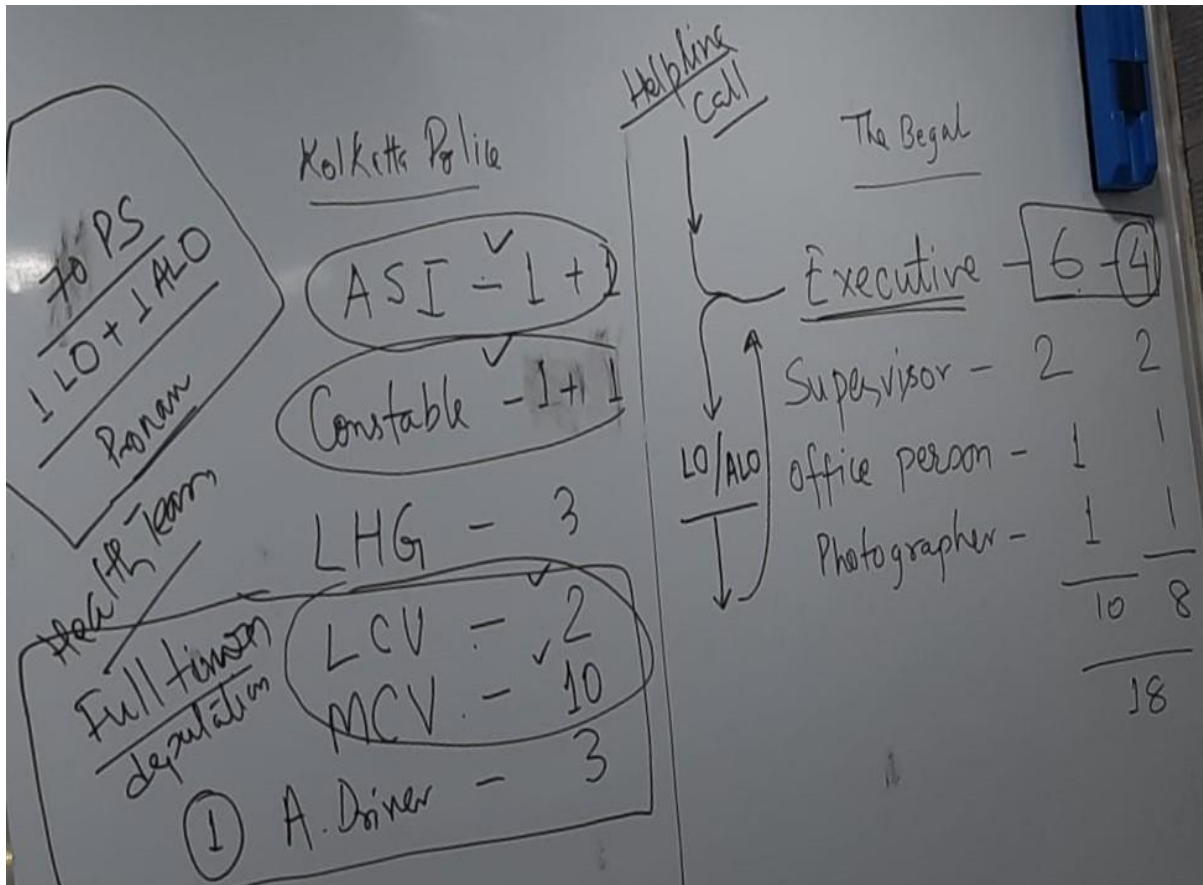 70 PS
1 LO + 1 ALO
Pronam
Health Team
Full time
deputation
Kolkatta Police
ASI - 1 + 1
Constable - 1 + 1
LHG - 3
LCV - 2
MCV - 10
① A. Driver - 3
Helpline
Call
LO/ALO
The Begal
Executive - 6 - 4
Supervisor - 2 2
office person - 1 1
Photographer - 1 1
10 8
18